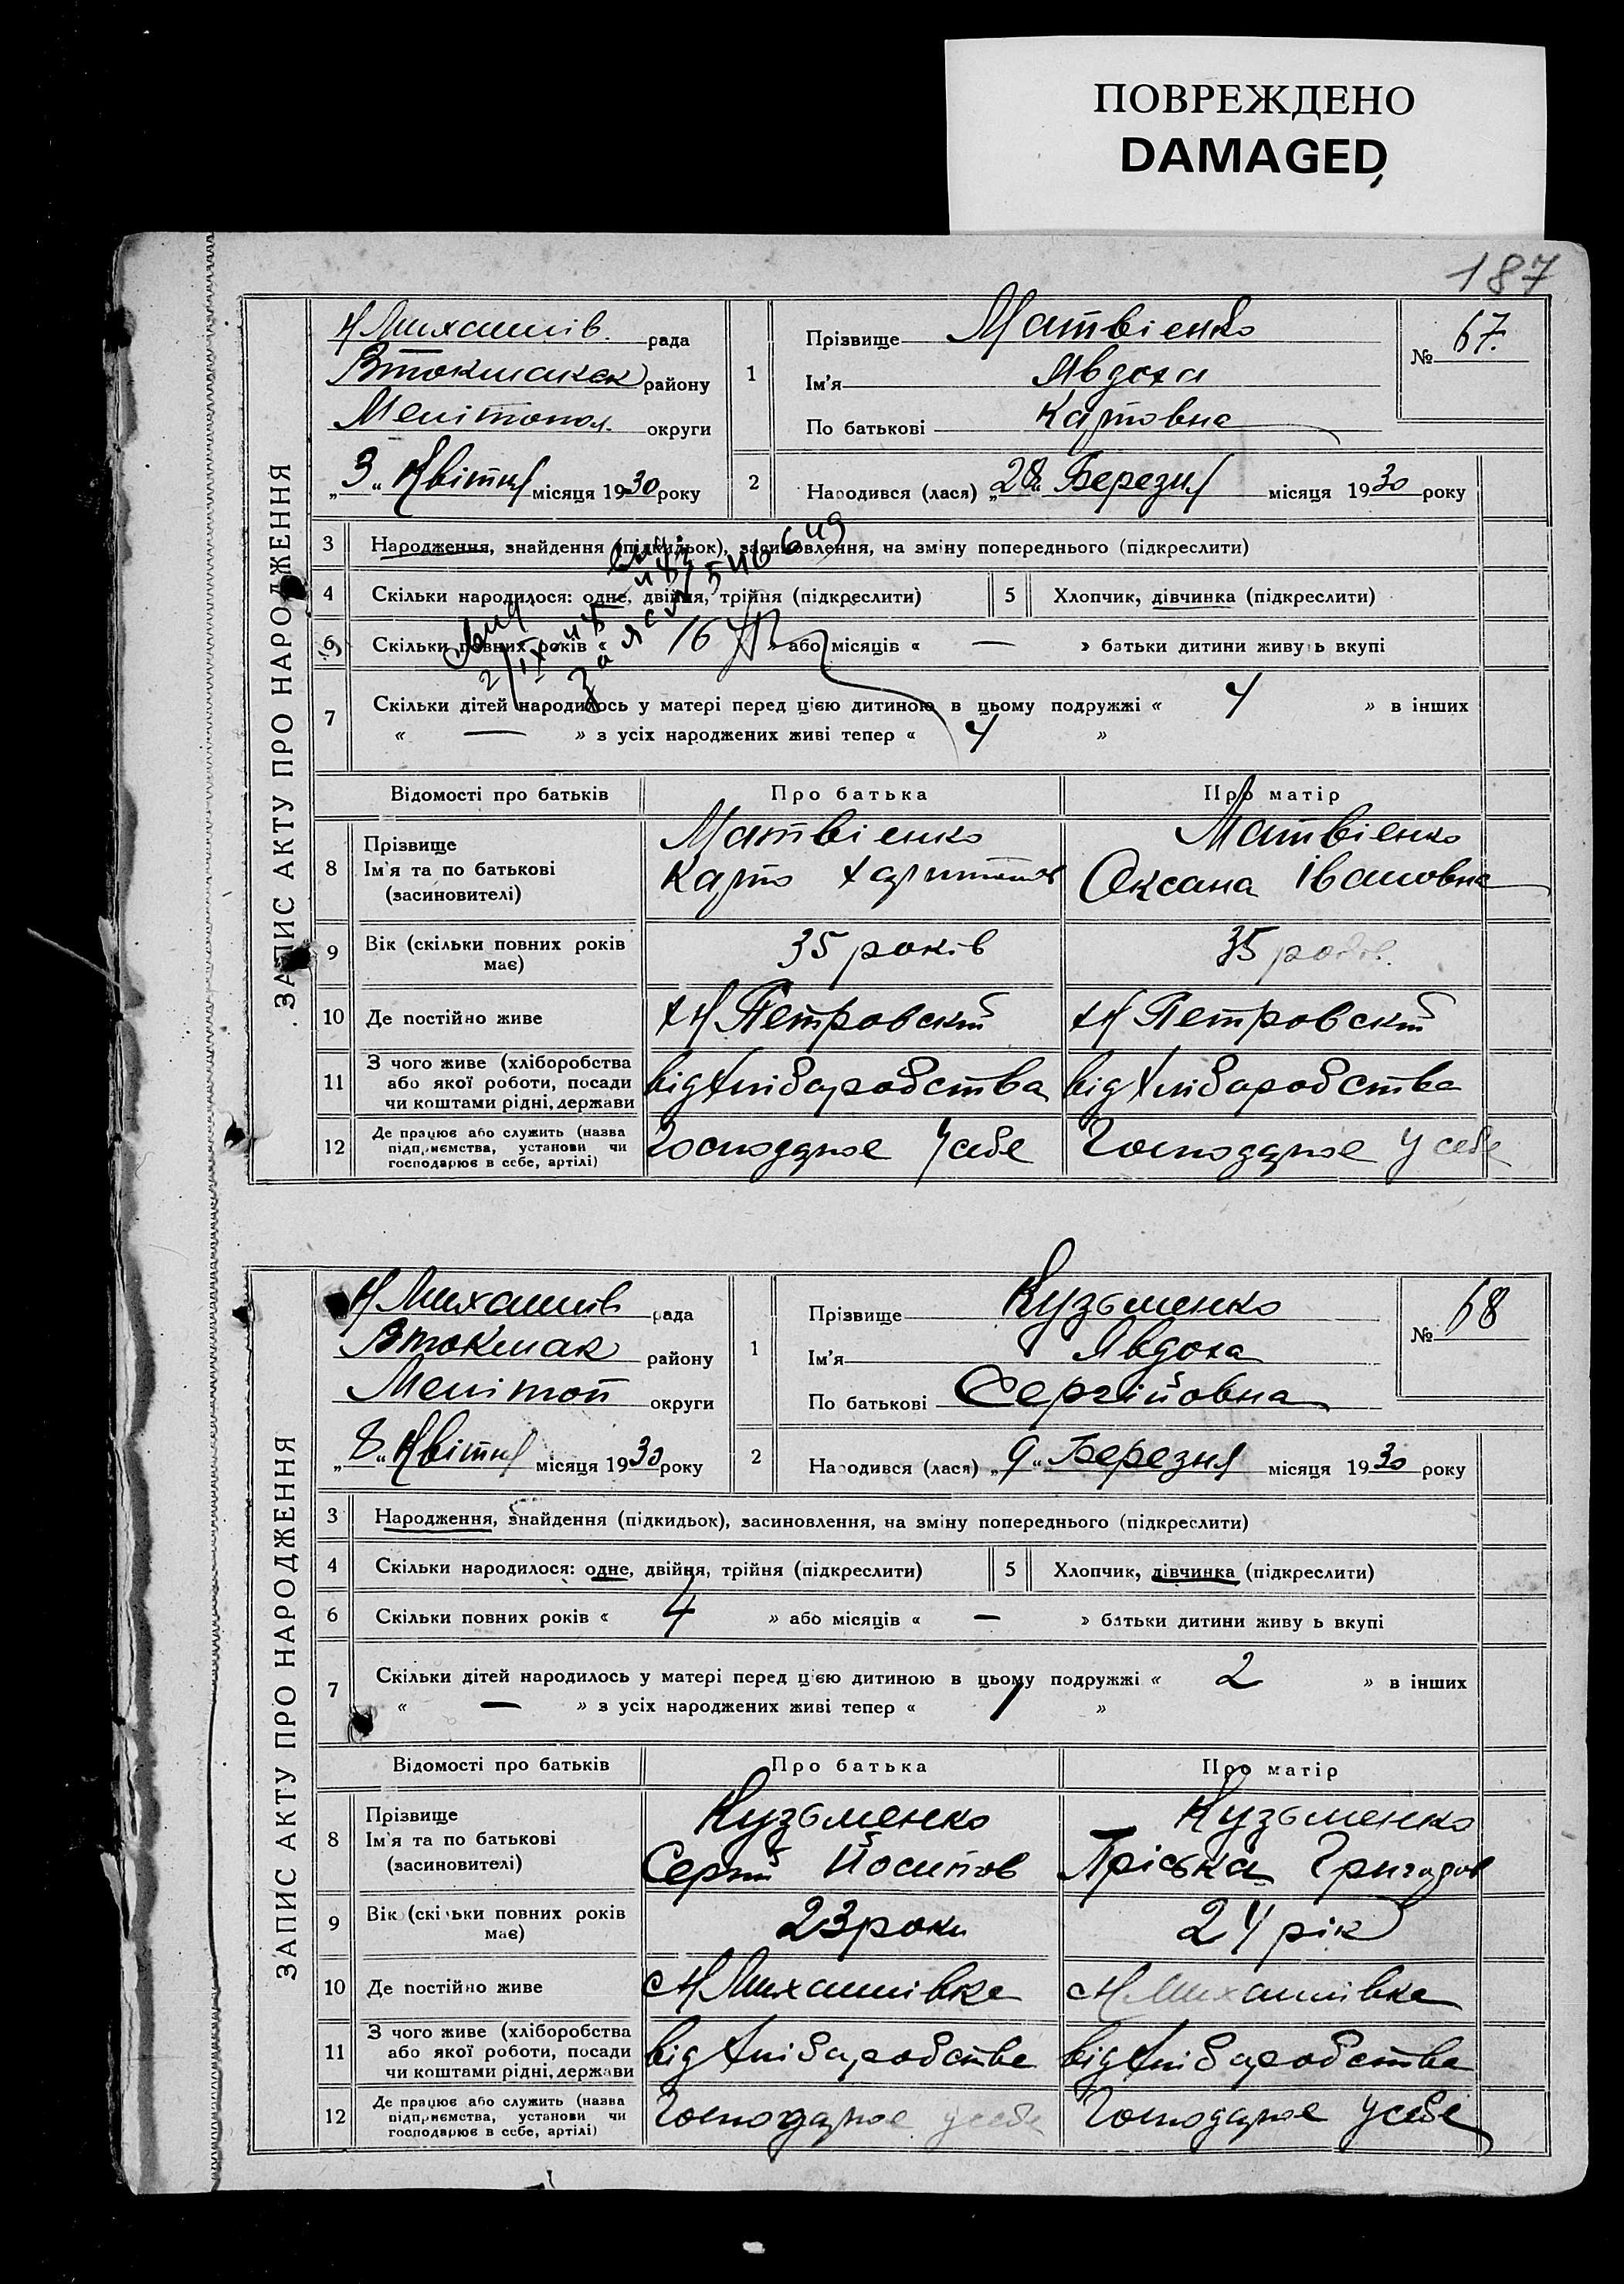 ПОВРЕЖДЕНО
DAMAGED
187
ЗАПИС АКТУ ПРО НАРОДЖЕННЯ
Н Михайлів. рада
Втокмакск району
Мелітопол. округи
„3“ Квітня місяця 1930 року
1
Прізвище Матвіенко
Ім'я Явдоха
По батькові Карповна
№ 67.
2
Народився (лася) „28“ Березня місяця 1930 року
3 Народження, знайдення (підкидьок), засиновлення, на зміну попереднього (підкреслити)
4 Скільки народилося: одне, двійня, трійня (підкреслити)
5 Хлопчик, дівчинка (підкреслити)
6 Скільки повних років « 16 » або місяців « — » батьки дитини живуть вкупі
7 Скільки дітей народилось у матері перед цією дитиною в цьому подружжі « 4 » в інших
« — » з усіх народжених живі тепер « 4 »
Відомості про батьків Про батька Про матір
8 Прізвище Матвіенко Матвіенко
Ім'я та по батькові Карпо Харитонов Оксана Івановна
(засиновителі)
9 Вік (скільки повних років має) 35 років 35 років.
10 Де постійно живе хН Петровский хН Петровский
11 З чого живе (хліборобства
або якої роботи, посади
чи коштами рідні, держави від хліборобства від хліборобства
12 Де працює або служить (назва
підприємства, установи чи
господарює в себе, артілі) Господарює у себе Господарює у себе
ЗАПИС АКТУ ПРО НАРОДЖЕННЯ
Н Михайлів рада
Втокмак району
Мелітоп округи
„8“ Квітня місяця 1930 року
1
Прізвище Кузьменко
Ім'я Явдоха
По батькові Сергійовна
№ 68
2
Народився (лася) „9“ Березня місяця 1930 року
3 Народження, знайдення (підкидьок), засиновлення, на зміну попереднього (підкреслити)
4 Скільки народилося: одне, двійня, трійня (підкреслити)
5 Хлопчик, дівчинка (підкреслити)
6 Скільки повних років « 4 » або місяців « — » батьки дитини живуть вкупі
7 Скільки дітей народилось у матері перед цією дитиною в цьому подружжі « 2 » в інших
« — » з усіх народжених живі тепер « 1 »
Відомості про батьків Про батька Про матір
8 Прізвище Кузьменко Кузьменко
Ім'я та по батькові Сергій Йосипов Пріська Григоров
(засиновителі)
9 Вік (скільки повних років має) 23 роки 24 рік
10 Де постійно живе с Н Михайлівка с Н Михайлівка
11 З чого живе (хліборобства
або якої роботи, посади
чи коштами рідні, держави від хліборобства від хліборобства
12 Де працює або служить (назва
підприємства, установи чи
господарює в себе, артілі) Господарює у себе Господарює у себе